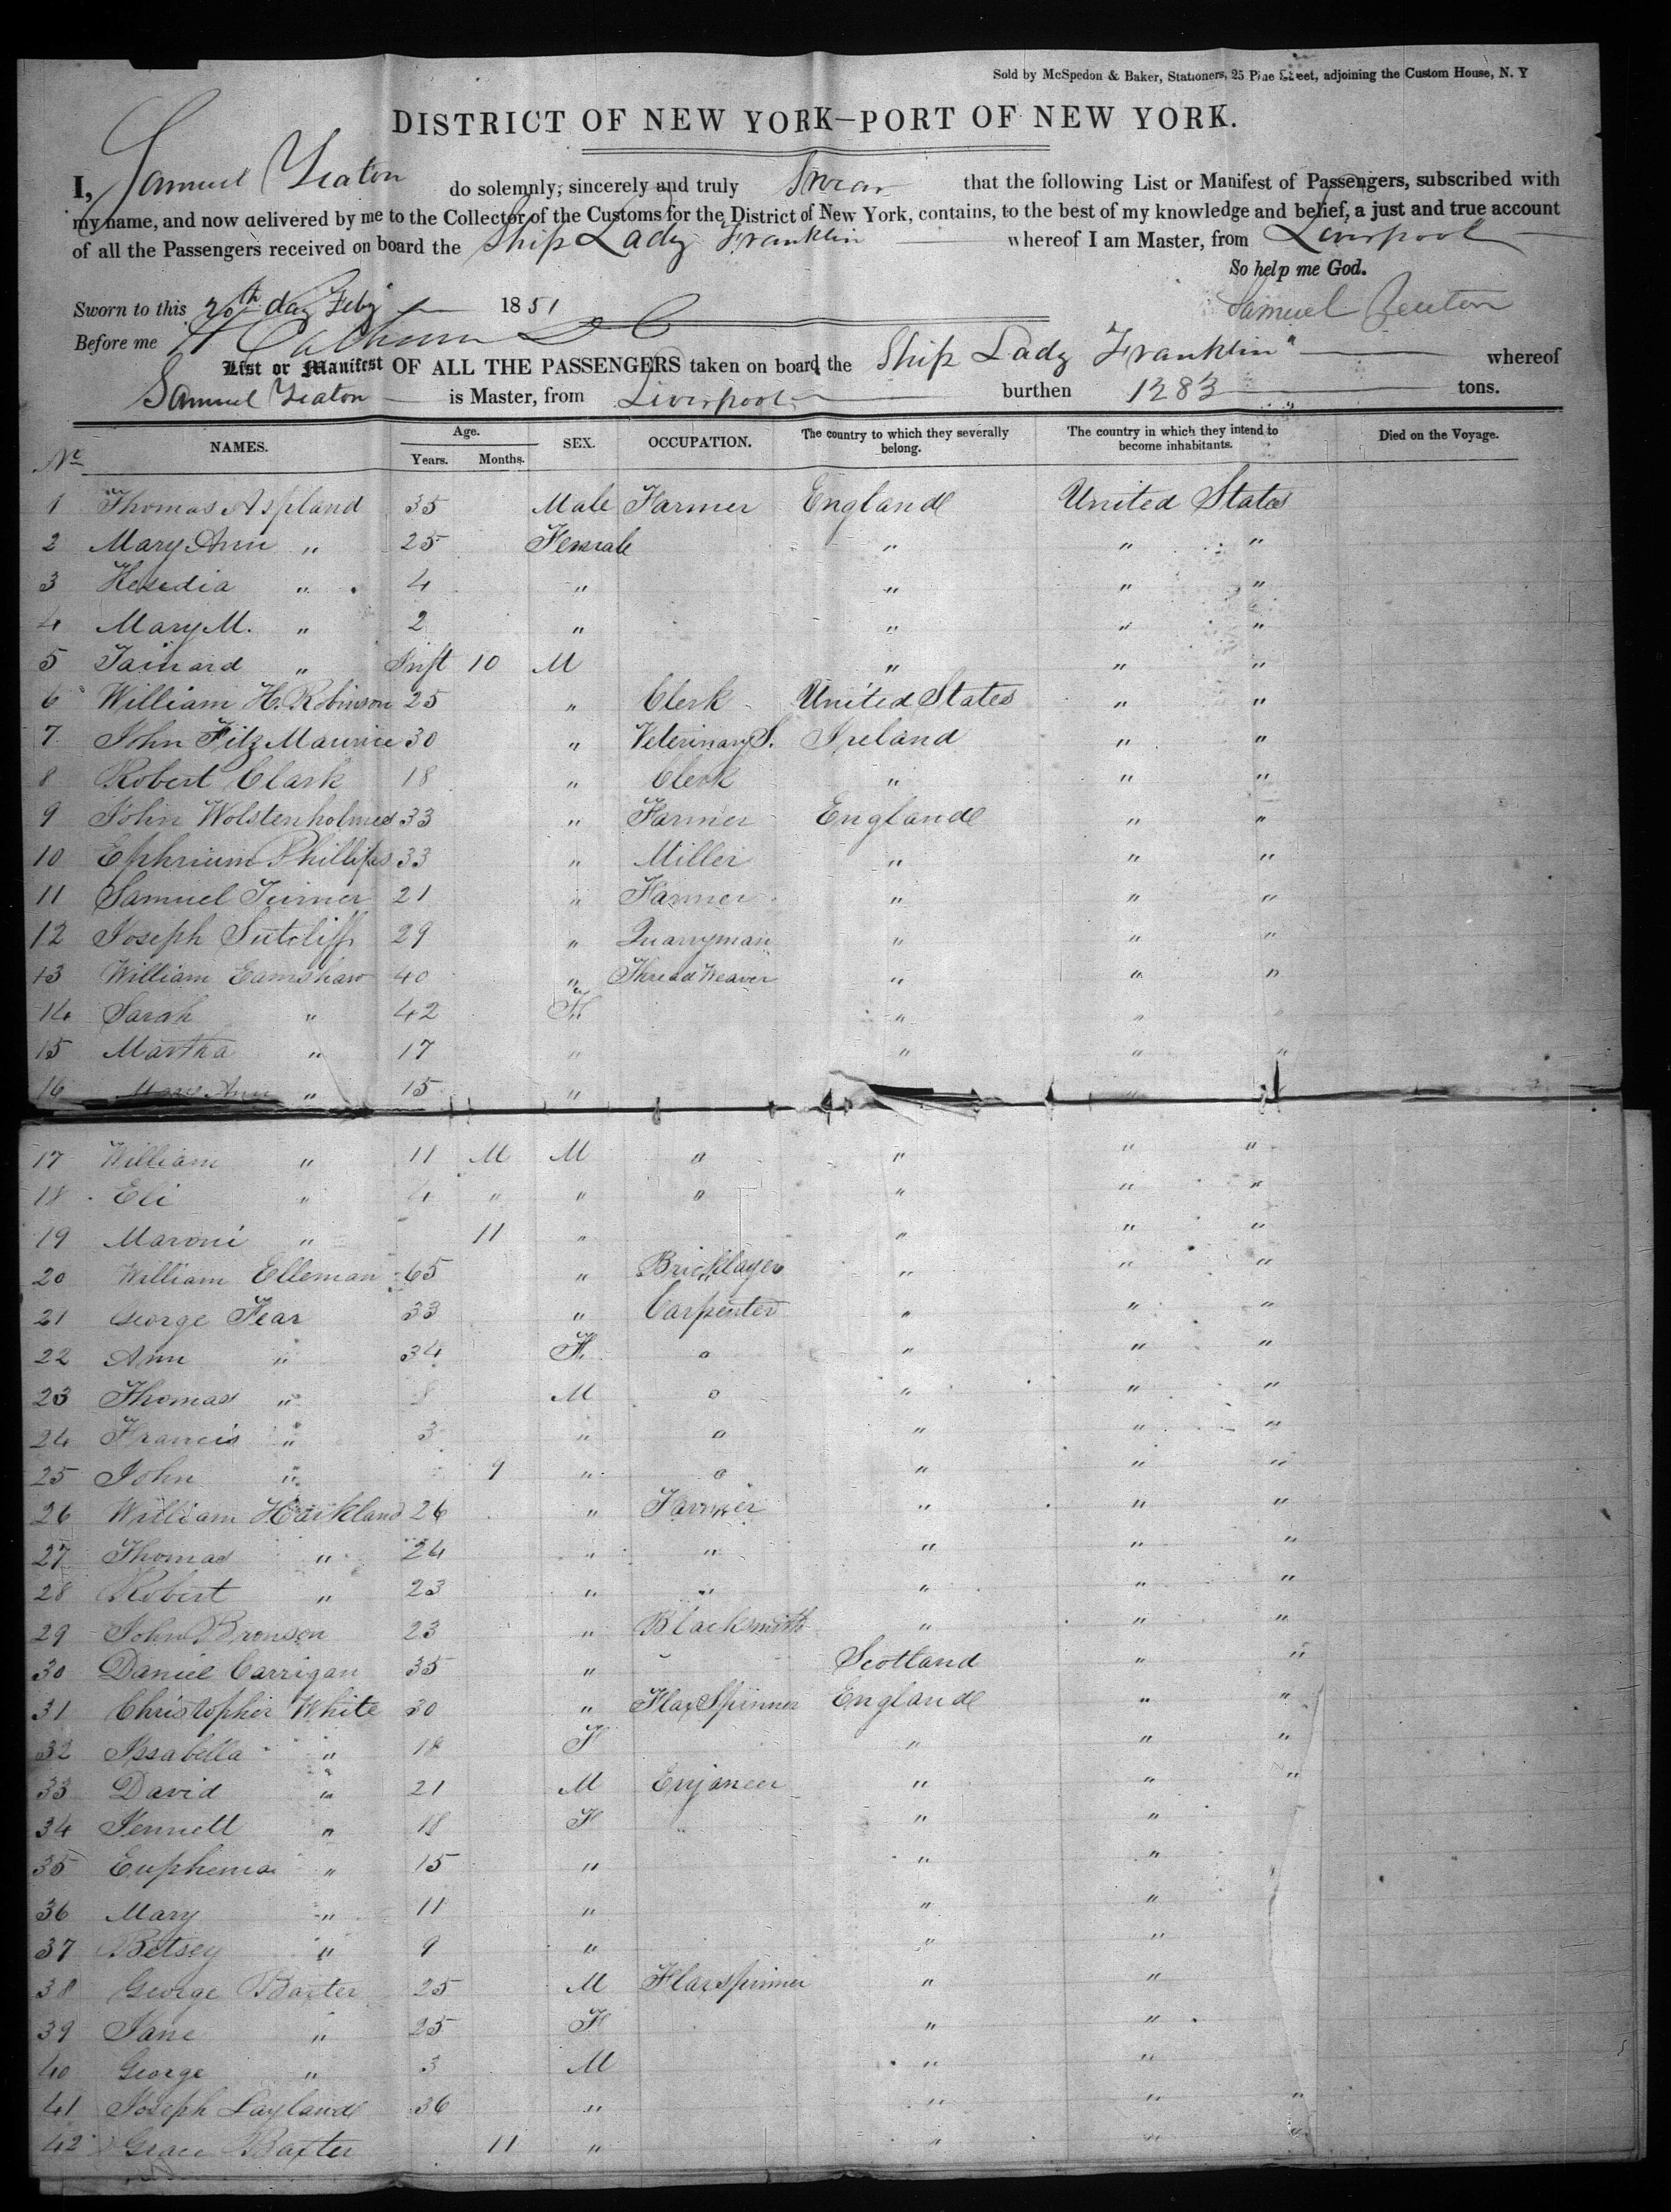 Sold by McSpedon & Baker, Stationers, 25 Pine Street, adjoining the Custom House, N. Y
DISTRICT OF NEW YORK—PORT OF NEW YORK.
I, Samuel Yeaton do solemnly, sincerely and truly Swear that the following List or Manifest of Passengers, subscribed with
my name, and now delivered by me to the Collector of the Customs for the District of New York, contains, to the best of my knowledge and belief, a just and true account
of all the Passengers received on board the Ship Lady Franklin whereof I am Master, from Liverpool
So help me God.
Sworn to this 20th day Feby 1851 Samuel Yeaton
Before me
List or Manifest OF ALL THE PASSENGERS taken on board the Ship Lady Franklin whereof
Samuel Yeaton is Master, from Liverpool burthen 1283 tons.
No NAMES. Age. Years. Months. SEX. OCCUPATION. The country to which they severally belong. The country in which they intend to become inhabitants. Died on the Voyage.
1 Thomas Aspland 35 Male Farmer Englande United States
2 Mary Ann " 25 Female " " "
3 Hesedia " 4 " " " "
4 Mary M. " 2 " " " "
5 " Inft 10 M " " "
6 William H. Robinson 25 " Clerk United States " "
7 John Fitz Maurice 30 " Veterinary S. Ireland " "
8 Robert Clark 18 " Clerk " " "
9 John Wolstenholmes 33 " Farmer Englande " "
10 Ephrium Phillips 33 " Miller " " "
11 Samuel Turner 21 " Farmer " " "
12 Joseph Sutcliff 29 " Quarryman " " "
13 William Earnshaw 40 " Thread Weaver " " "
14 Sarah " 42 F " " "
15 Martha " 17 " " " "
16 Mary Ann " 15 " "
17 William " 11 M M " " " "
18 Eli " 4 " " " " " "
19 Maroni " 11 " " " "
20 William Elleman 65 " Bricklayer " " "
21 George Fear 33 " Carpenter " " "
22 Ann " 34 F. o " " "
23 Thomas " 8 M o " " "
24 Francis " 3 " o " " "
25 John " 9 " o " " "
26 William Hackland 26 " Farmer " " "
27 Thomas " 24 " " " " "
28 Robert " 23 " " " " "
29 John Bronson 23 " Blacksmith " " "
30 Daniel Carrigan 35 " - Scotland " "
31 Christopher White 30 " Flax Spinner Englande " "
32 Issabella " 18 F " " "
33 David " 21 M Enjaneer " " "
34 Jennett " 18 F " "
35 Euphema " 15 " " "
36 Mary " 11 " " "
37 Betsey " 9 " " "
38 George Baxter 25 M Flaxspinner " "
39 Jane " 25 F " "
40 George " 3 M " "
41 Joseph Laylande 36 " " " "
42 Grace Baxter 11 " " " "